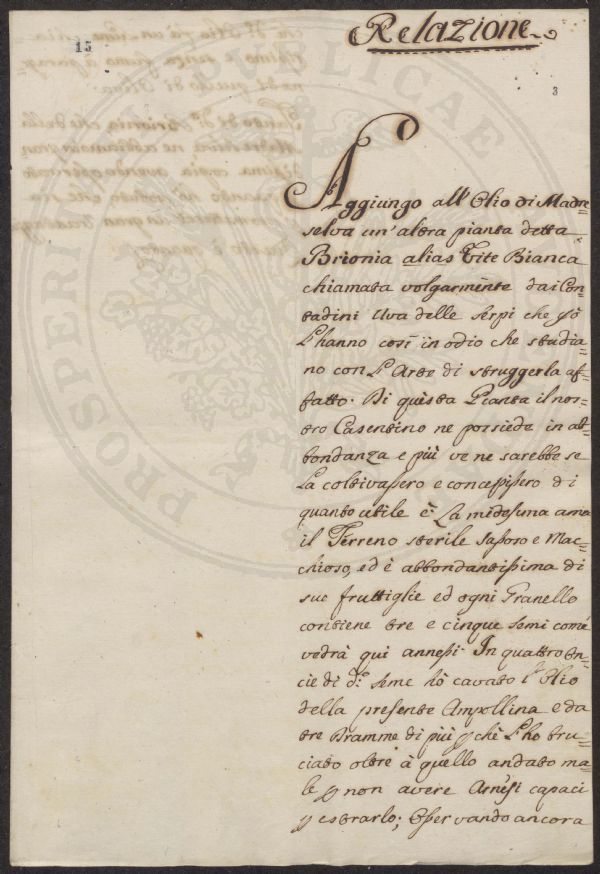 15
Relazione
3
Aggiungo all'Olio di Madre
selva un'altra pianta detta
Brionia alias Vite Bianca
chiamata volgarmente dai Con-
tadini Uva delle serpi che
l'hanno così in odio che studia-
no con l'Arte di struggerla af-
fatto. Di questa Pianta il nos-
tro Casentino ne possiede in ab-
bondanza e più ve ne sarebbe se
La coltivassero e concepissero di
quanto utile è: La midesima ama
il Terreno sterile sassoso e Mac-
chioso, ed è abbondantissima di
sue fruttiglie ed ogni Granello
contiene tre e cinque semi come
vedrà qui annessi. In quattro On-
cie di d.º seme hò cavato l'Olio
della presente Ampollina e da
tre Dramme di più p chè l'ho bru-
ciato oltre à quello andato ma-
le p non avere Arnesi capaci
p estrarlo; Osservando ancora
PROSPERITATI PUBLICAE